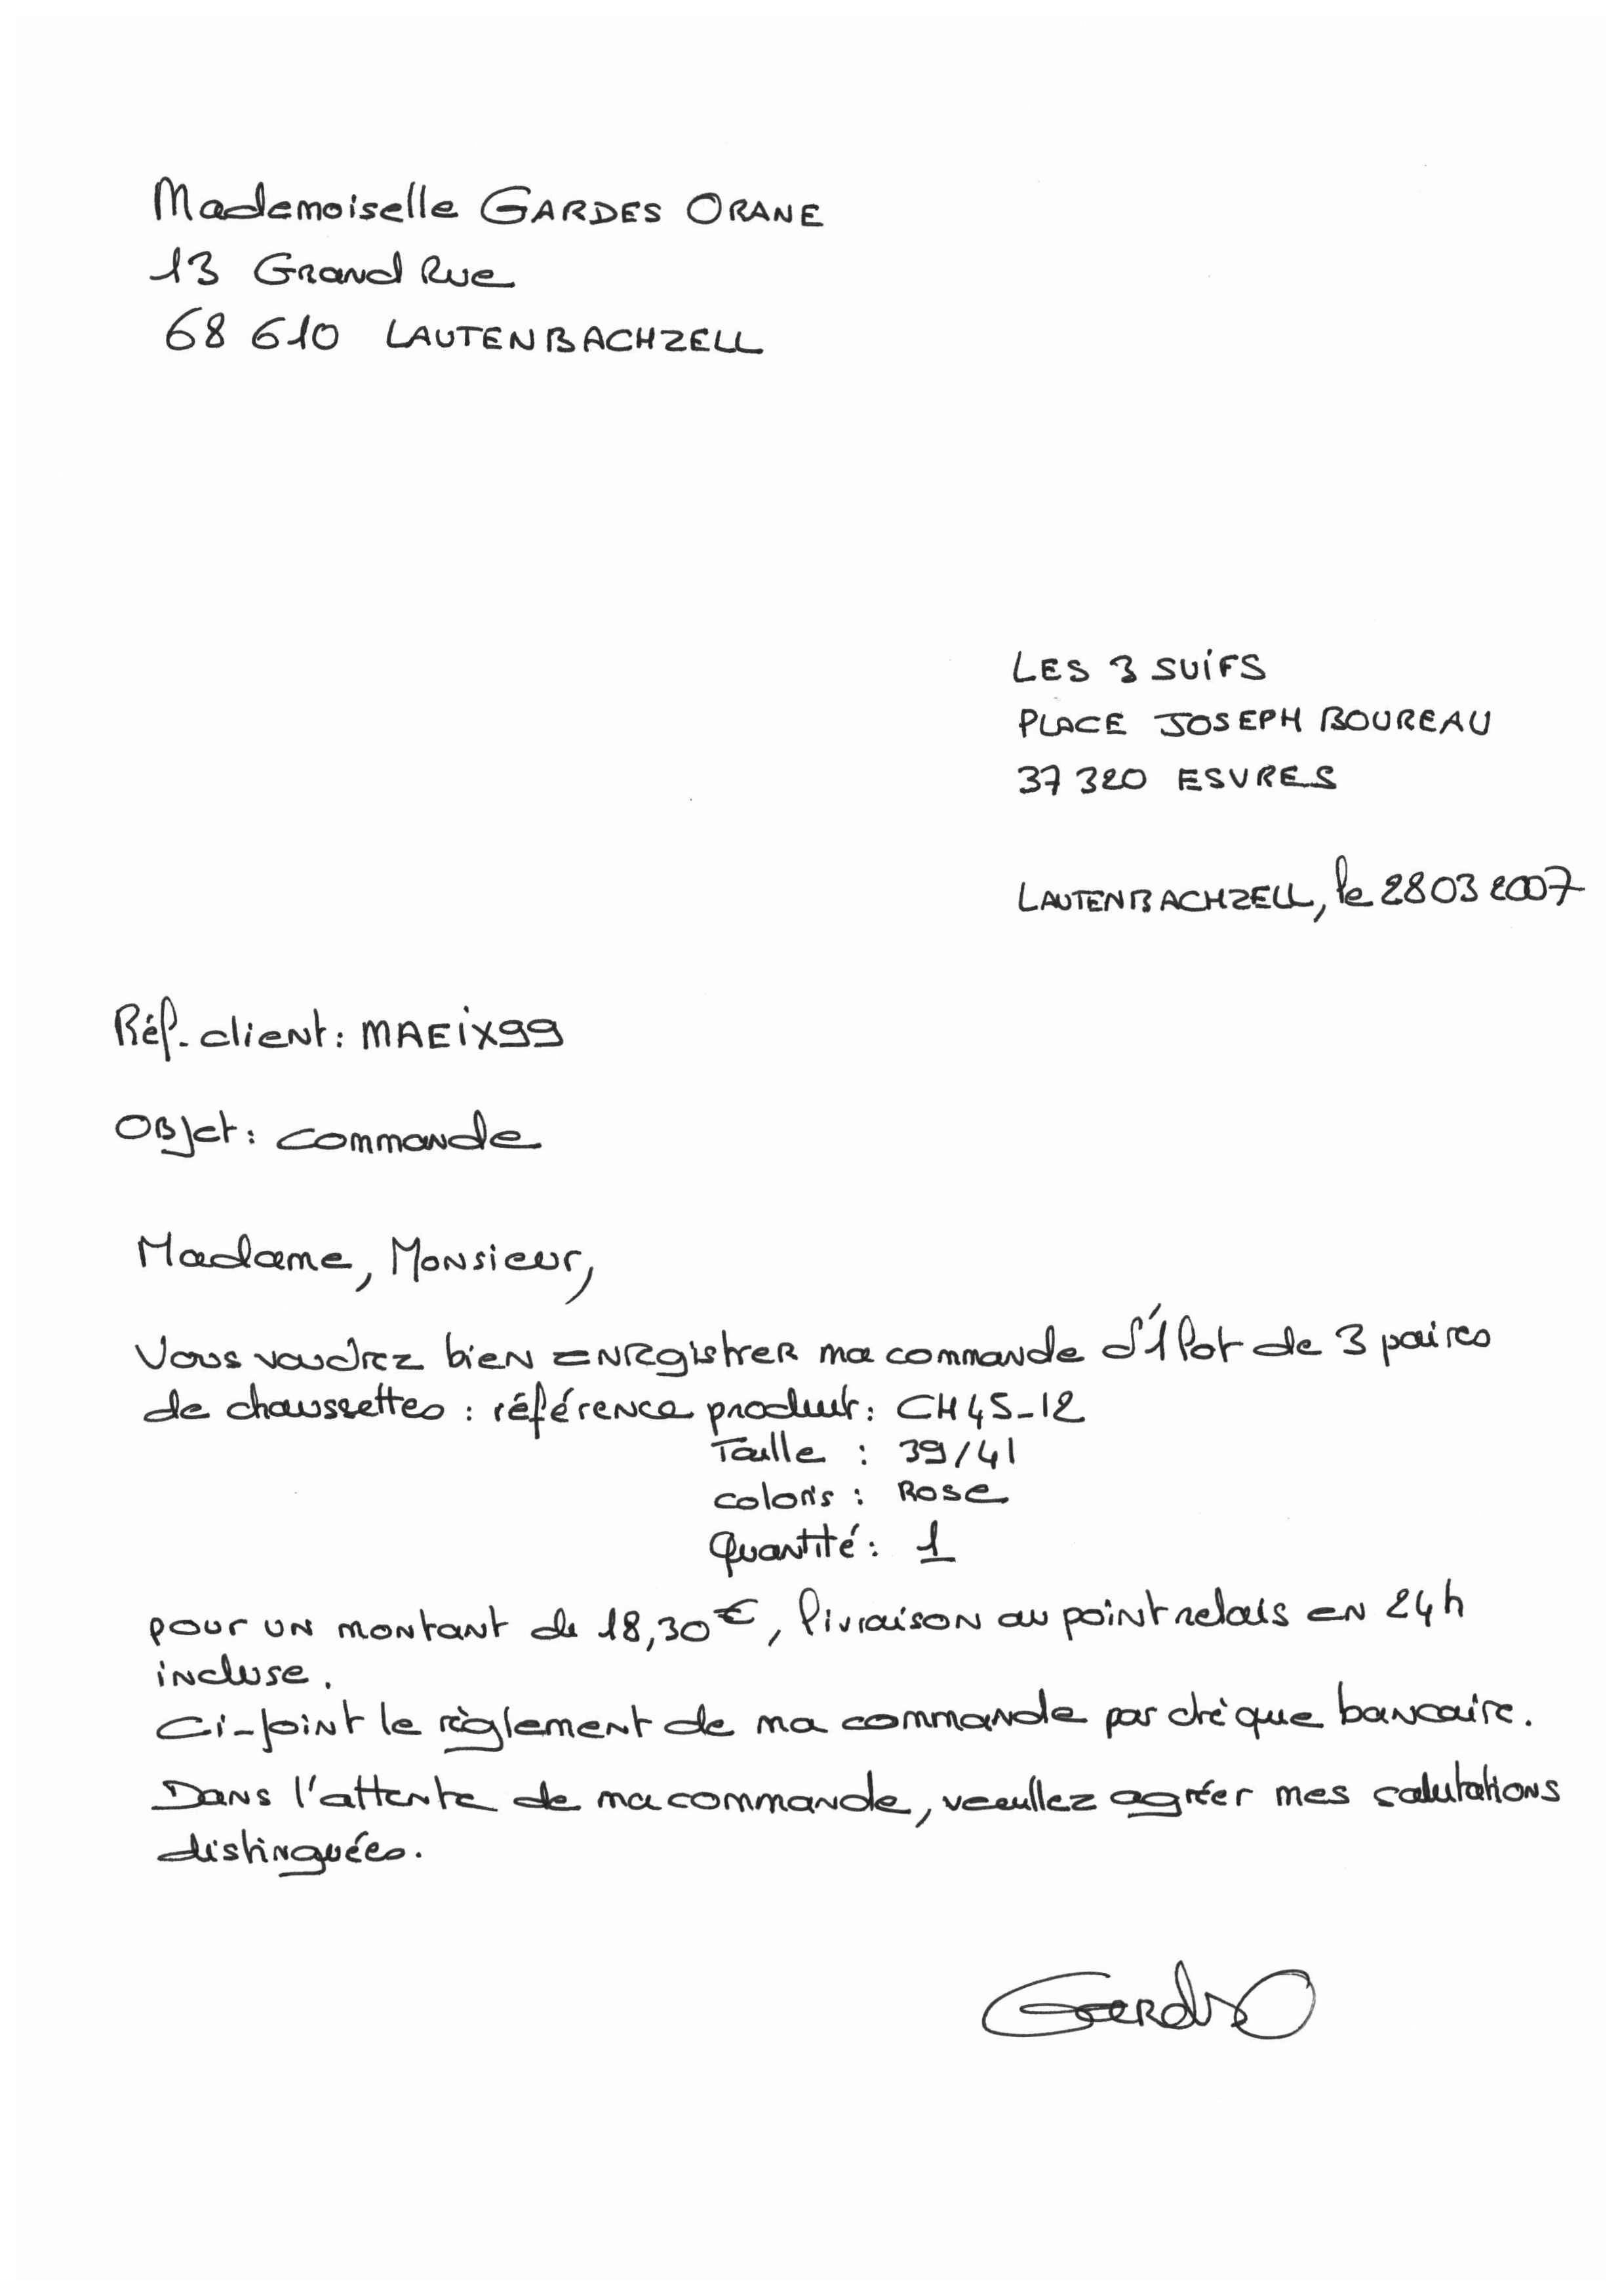 Mademoiselle GARDES ORANE
13 Grand Rue
68 610 LAUTENBACHZELL
LES 3 SUiFS
PLACE JOSEPH BOUREAU
37 320 ESVRES
LAUTENBACHZELL, le 28 03 2007
Réf. client : MAEiX99
Objet : commande
Madame, Monsieur,
Vous voudrez bien enregistrer ma commande d'1 lot de 3 paires
de chaussettes : référence produit : CH45-12
Taille : 39/41
coloris : Rose
Quantité : 1
pour un montant de 18,30€, livraison au point relais en 24h
incluse.
Ci-joint le règlement de ma commande par chèque bancaire.
Dans l'attente de ma commande, veuillez agréer mes salutations
distinguées.